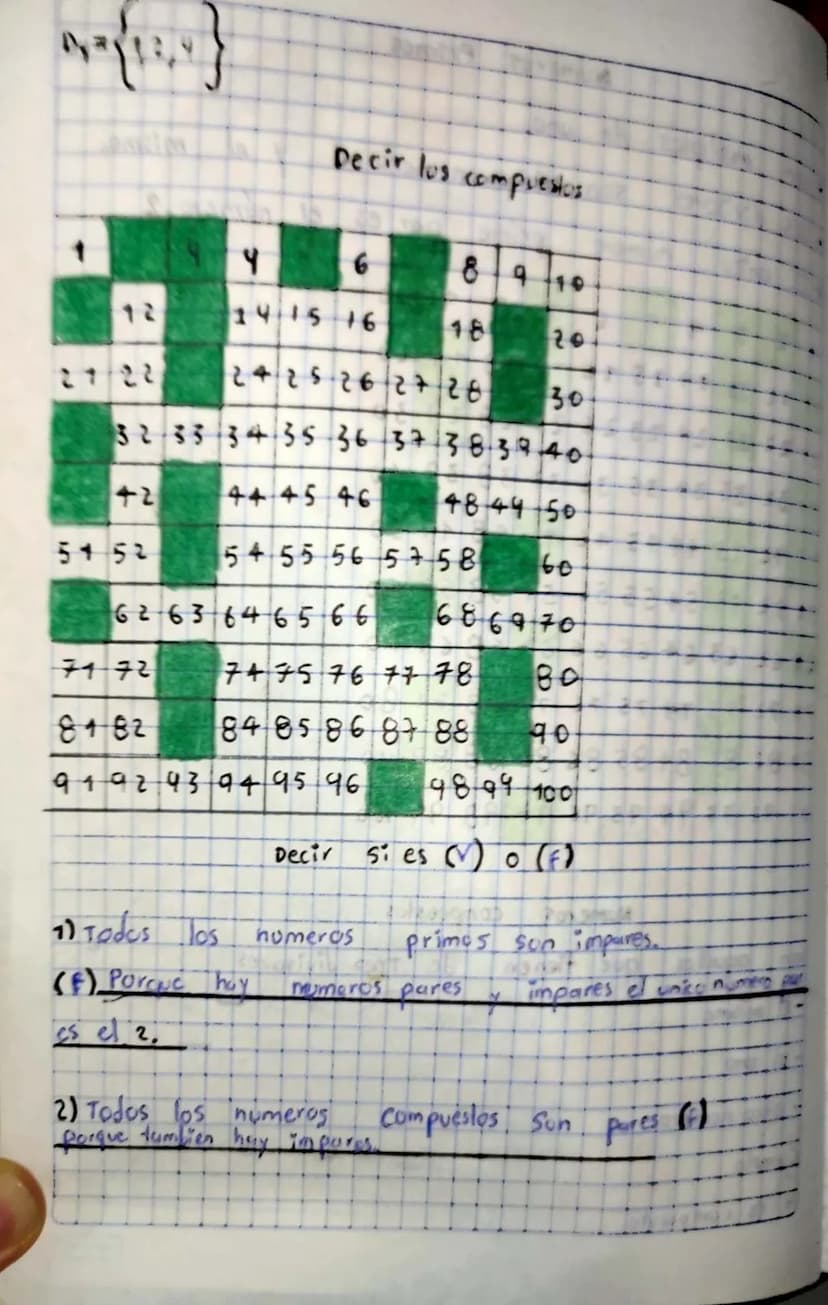 D4={1,2,4}
Decir los compuestos
1 4 4 6 8 9 10
12 14 15 16 18 20
21 22 24 25 26 27 28 30
32 33 34 35 36 37 38 39 40
42 44 45 46 48 49 50
51 52 54 55 56 57 58 60
62 63 64 65 66 68 69 70
71 72 74 75 76 77 78 80
81 82 84 85 86 87 88 90
91 92 93 94 95 96 98 99 100
Decir si es (V) o (F)
1) Todos los numeros primos son impares.
(F) Porque hay numeros pares y impares el unico numero par
es el 2.
2) Todos los numeros compuestos son pares (F)
porque tambien hay impares.